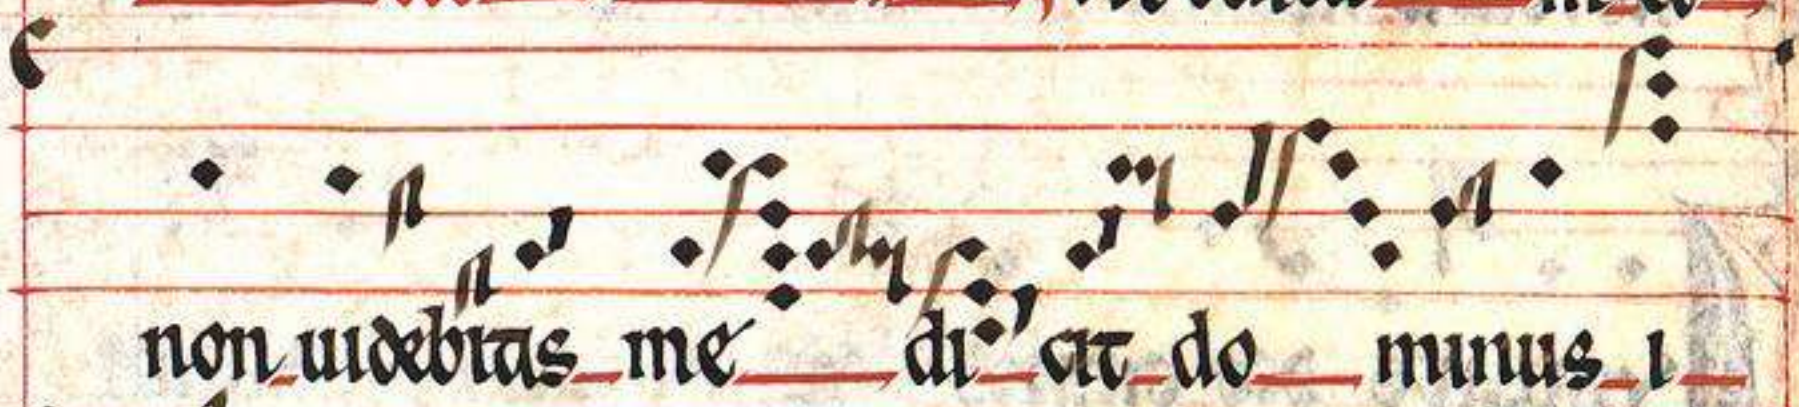 non uidebitis me di cit do minus i